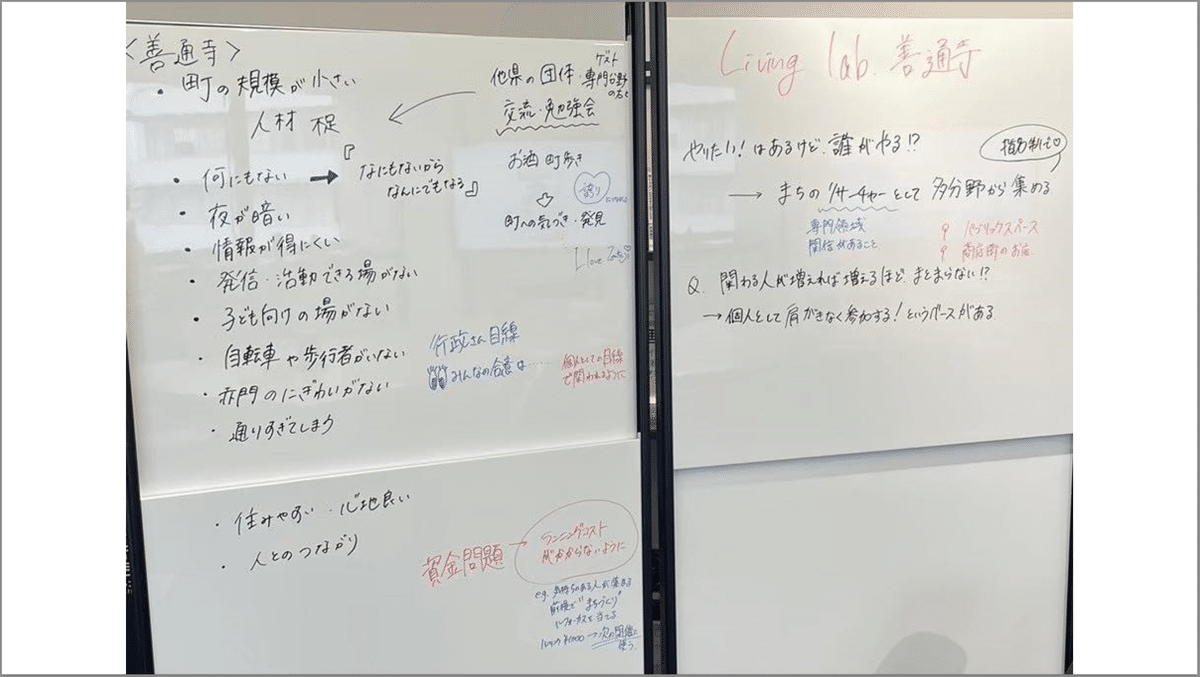 <善通寺>
・町の規模が小さい
人材 不足
・何にもない → 『なにもないから
なんにでもなる』
・夜が暗い
・情報が得にくい
・発信・活動できる場がない
・子ども向けの場がない
・自転車や歩行者がいない
・赤門のにぎわいがない
・通りすぎてしまう
・住みやすい・心地良い
・人とのつながり
他県の団体・専門分野の方と
ゲスト
交流・勉強会
お酒 町歩き
町への気づき・発見
誇り
I love
行政さん目線
みんなの合意は
個人としての目線
で関われるように
資金問題 → ランニングコスト
がかからないように
e.g. 気持ちのある人が集める
前提で"まちづくり"
にフォーカスを当てる
¥1000 → 次の開催に
使う
Living lab. 善通寺
やりたい!はあるけど、誰がやる!?
指名制で
→ まちのリサーチャーとして 多分野から集める
専門領域
関信があること
パブリックスペース
商店街のお店
Q. 関わる人が増えれば増えるほど、まとまらない!?
→個人として肩がきなく参加する!というベースがある